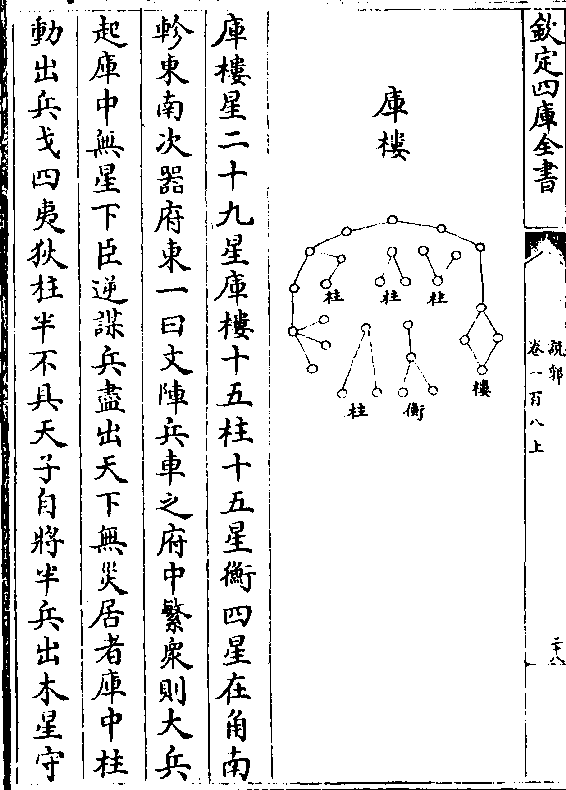 欽定四庫全書
說郛
卷一百八上
二十八
庫樓
柱
柱
柱
柱
衡
樓
庫樓星二十九星庫樓十五柱十五星衡四星在角南
軫東南次器府東一曰文陣兵車之府中繁衆則大兵
起庫中無星下臣逆謀兵盡出天下無災居者庫中柱
動出兵戈四夷狄柱半不具天子自將半兵出木星守